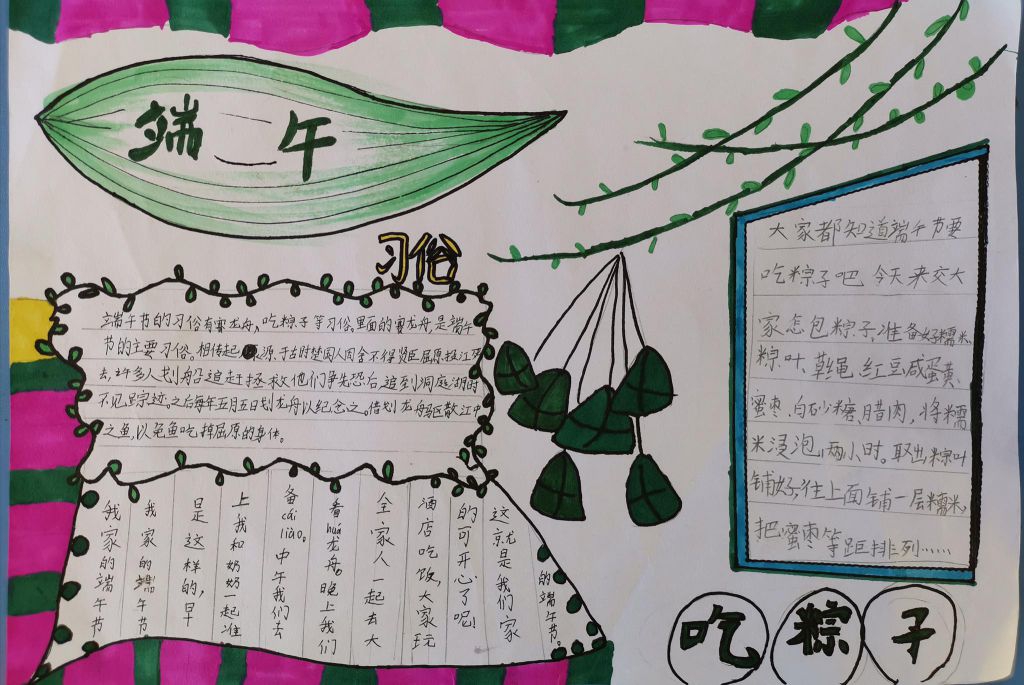 端午
习俗
端午节的习俗有赛龙舟,吃粽子等习俗。里面的赛龙舟,是端午
节的主要习俗。相传起源于古时楚国人因舍不得贤臣屈原投江死
去,许多人划船追赶拯救他们争先恐后,追到洞庭湖时
不见踪迹。之后每年五月五日划龙舟以纪念之。借划龙舟驱散江中
之鱼,以免鱼吃掉屈原的身体。
我家的端午节
我家的端午节
是这样的,早
上我和奶奶一起准
备cái liào。中午我们去
看huá龙舟。晚上我们
全家人一起去大
酒店吃饭,大家玩
的可开心了呢!
这就是我们家
的端午节。
大家都知道端午节要
吃粽子吧 今天来交大
家怎包粽子,准备好糯米、
粽叶、草绳、红豆咸蛋黄、
蜜枣、白砂糖、腊肉,将糯
米浸泡,两小时。取出粽叶
铺好,往上面铺一层糯米,
把蜜枣等距排列……
吃粽子